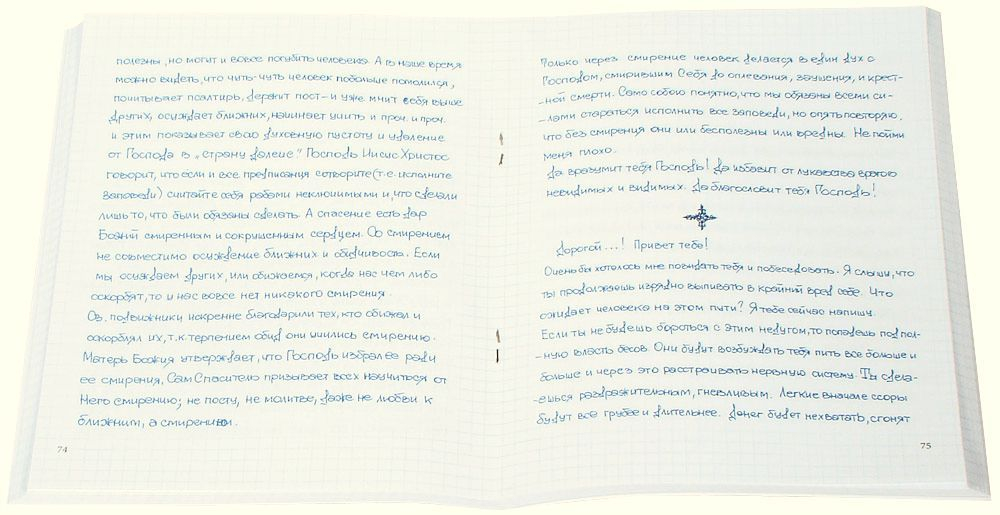 полезны, но могут и вовсе погубить человека. А в наше время
можно видеть, что чить-чуть человек побольше помолился,
почитывает псалтирь, держит пост – и уже мнит себя выше
других, осуждает ближних, начинает учить и проч. и проч.
и этим показывает свою духовную пустоту и удаление
от Господа в „страну далече." Господь Иисус Христос
говорит, что если и все предписания сотворите (т.е. исполните
заповеди) считайте себя рабами неключимыми и, что сделали
лишь то, что были обязаны сделать. А спасение есть дар
Божий смиренным и сокрушенным сердцем. Со смирением
не совместимо осуждение ближних и обидчивость. Если
мы осуждаем других, или обижаемся, когда нас чем либо
оскорбят, то у нас вовсе нет никакого смирения.
Св. подвижники искренне благодарили тех, кто обижал и
оскорблял их, т.к. терпением обид они учились смирению.
Матерь Божия утверждает, что Господь избрал ее ради
ее смирения, Сам Спаситель призывает всех научиться от
Него смирению; не посту, не молитве, даже не любви к
ближним, а смирению.
74
Только через смирение человек делается в един дух с
Господом, смирившим Себя до оплевания, заушения, и крест-
-ной смерти. Само собою понятно, что мы обязаны всеми си-
-лами стараться исполнить все заповеди, но опять повторяю,
что без смирения они или бесполезны или вредны. Не пойми
меня плохо.
Да вразумит тебя Господь! Да избавит от лукавства врагов
невидимых и видимых. Да благословит тебя Господь!
Дорогой...! Привет тебе!
Очень бы хотелось мне повидать тебя и побеседовать. Я слышу, что
ты продолжаешь изрядно выпивать в крайний вред себе. Что
ожидает человека на этом пути? Я тебе сейчас напишу.
Если ты не будешь бороться с этим недугом, то попадешь под пол-
-ную власть бесов. Они будут возбуждать тебя пить все больше и
больше и через это расстраивать нервную систему. Ты сдела-
-ешься раздражительным, гневливым. Легкие вначале ссоры
будут все грубее и длительнее. Денег будет нехватать, сгонят
75